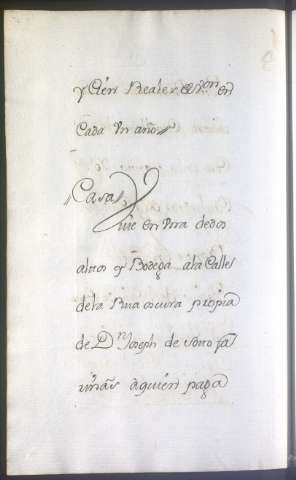 y Cien Reales de Von en
Cada Vn año
Casa, Viue en Vna de dos
altos y Bodega a la Calle
de la Rua oscura propia
de Dn Joseph de soto
a quien paga